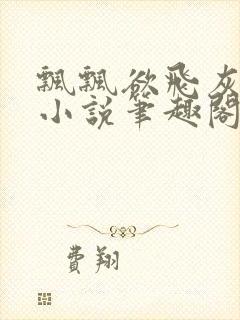 飄飄欲飛灰
小說筆趣閣
費翔